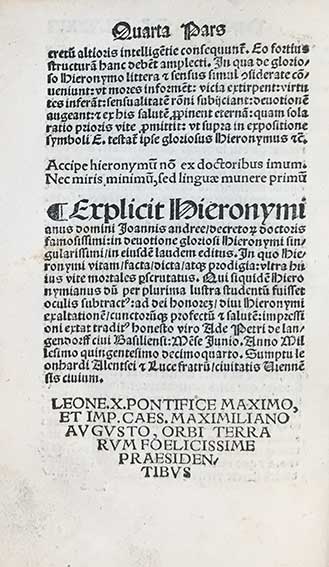 Quarta Pars
cretũ altioris intelligẽtie consequunt̃. Eo fortius
structurã hanc debẽt amplecti. In qua de glorio-
so Hieronymo littera & sensus simul ↄsiderate cõ-
ueniunt: vt mores informẽt: vicia extirpent: virtu
tes inferãt: sensualitatẽ rõni subijciant: deuotionẽ
augeant: & ex his salutẽ ꝓpinent eternã: quam sola
ratio prioris vite ꝓmittit: vt supra in expositione
symboli E. testãt̃ ipse gloriosus Hieronymus &c.
Accipe hieronymũ nõ ex doctoribus imum.
Nec miris minimũ, sed linguæ munere primũ
¶Explicit Hieronymi
anus domini Joannis andree/decretoꝝ doctoris
famosissimi: in deuotione gloriosi Hieronymi sin-
gularissimi/in eiusdẽ laudem editus. In quo Hie-
ronymi vitam/facta/dicta/atqꝫ prodigia: vltra hu
ius vite mortales ꝑscrutatus. Qui siquidẽ Hiero
nymianus dũ per plurima lustra studentũ fuisset
oculis subtract⁹: ad dei honorẽ/diui Hieronymi
exaltationẽ/cunctorũqꝫ ꝓfectũ & salutẽ: impressi
oni extat tradit⁹ honesto viro Ade Petri de lan-
gendorff ciui Basiliensi: Mẽse Junio. Anno Mil
lesimo quingentesimo decimoquarto. Sumptu le
onhardi Alentsei & Luce fratrũ/ciuitatis Uienneñ
sis ciuium.
LEONE.X.PONTIFICE MAXIMO,
ET IMP. CAES. MAXIMILIANO
AVGVSTO, ORBI TERRA
RVM FOELICISSIME
PRAESIDEN-
TIBVS